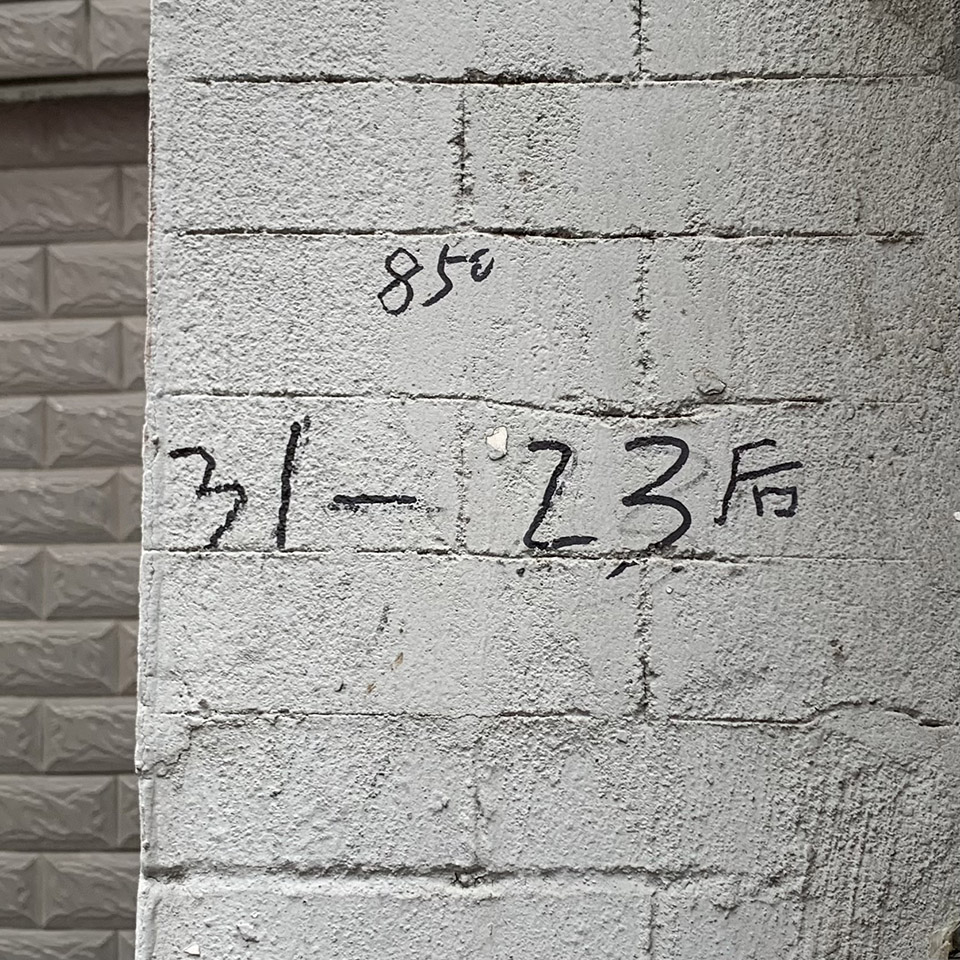 850
31-23后